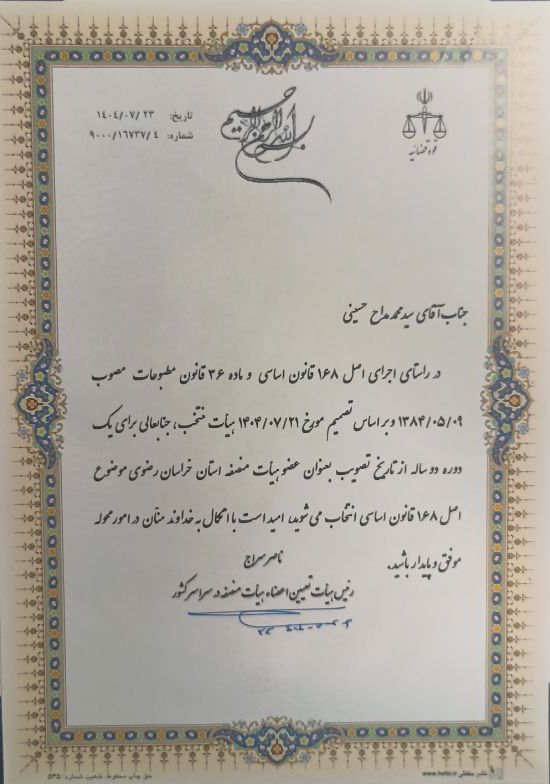 بسم الله الرحمن الرحیم
قوه قضائیه
تاریخ: ۱۴۰۴/۰۷/۲۳
شماره: ۹۰۰۰/۱۶۷۳۷/۴
جناب آقای سید محمد مداح حسینی
در راستای اجرای اصل ۱۶۸ قانون اساسی و ماده ۳۶ قانون مطبوعات مصوب
۱۳۸۴/۰۵/۰۹ و بر اساس تصمیم مورخ ۱۴۰۴/۰۷/۲۱ هیأت منتخب، جنابعالی برای یک
دوره دو ساله از تاریخ تصویب بعنوان عضو هیات منصفه استان خراسان رضوی موضوع
اصل ۱۶۸ قانون اساسی انتخاب می شوید، امید است با اتکال به خداوند منان در امور محوله
موفق و پایدار باشید.
ناصر سراج
رئیس هیات تعیین اعضاء هیات منصفه در سراسر کشور
نشر حافظی www.hafzi.ir
حق چاپ محفوظ تذهیب شماره ۵۳۵